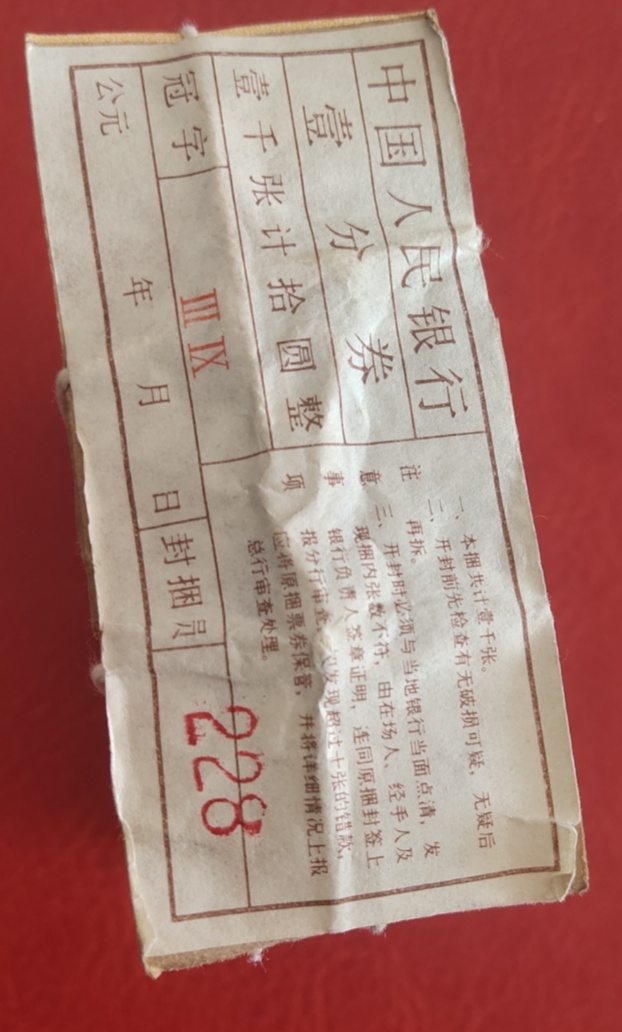 中国人民银行
壹分券
壹千张计拾圆整
冠字 III IX
公元 年 月 日 封捆员 228
注意事项
一、本捆共计壹千张。
二、开封前先检查有无破损可疑，无疑后
再拆。
三、开封时必须与当地银行当面点清，发
现捆内张数不符，由在场人、经手人及
银行负责人签章证明，连同原捆封签上
报分行审查 发现超过十张的错款，
应将原捆票券保管，并将详细情况上报
总行审查处理。